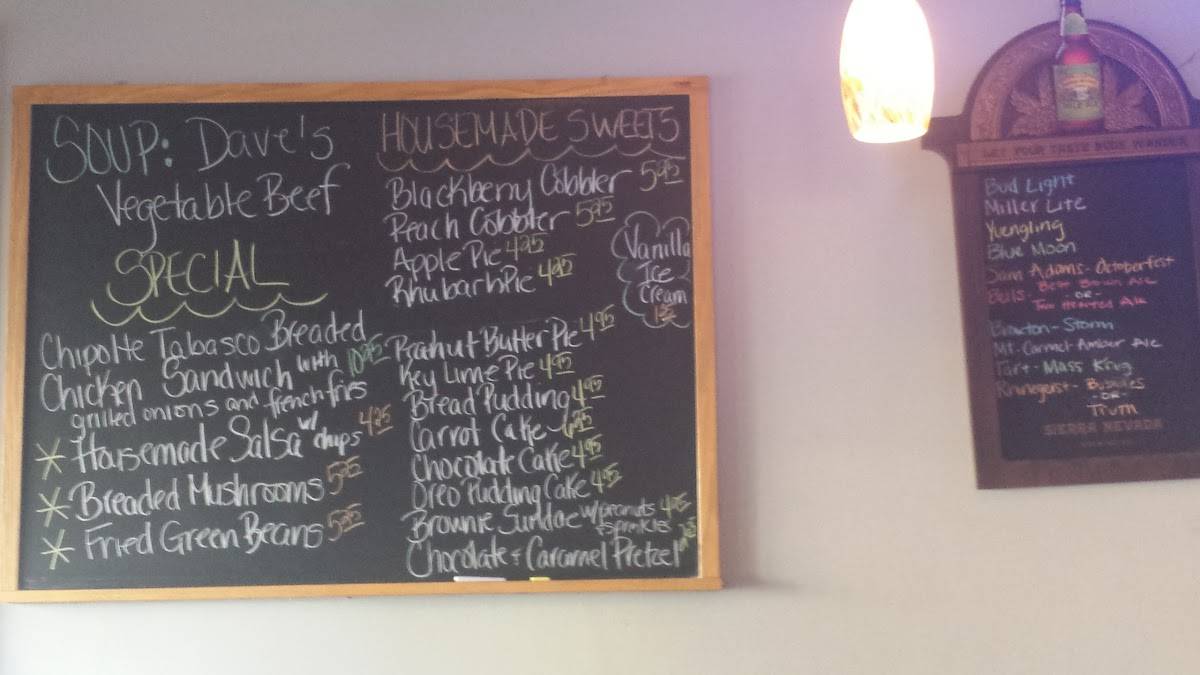 SOUP: Dave's
Vegetable Beef
SPECIAL
Chipotle Tabasco Breaded
Chicken Sandwich with 10.95
grilled onions and french fries
* Housemade Salsa w/ chips 4.25
* Breaded Mushrooms 5.25
* Fried Green Beans 5.25
HOUSEMADE SWEETS
Blackberry Cobbler 5.95
Peach Cobbler 5.95
Apple Pie 4.25
Rhubarb Pie 4.25
Vanilla
Ice
Cream
Peanut Butter Pie 4.95
Key Lime Pie 4.95
Bread Pudding 4.95
Carrot Cake 6.95
Chocolate Cake 4.95
Oreo Pudding Cake 4.95
Brownie Sundae w/ peanuts
& sprinkles
Chocolate & Caramel Pretzel
LET YOUR TASTE BUDS WANDER
Bud Light
Miller Lite
Yuengling
Blue Moon
Sam Adams - Octoberfest
Bells - Best Brown Ale
- OR -
Two Hearted Ale
Braxton - Storm
Mt. Carmel - Amber Ale
Taft - Mass King
Rhinegeist - Bubbles
- OR -
Truth
SIERRA NEVADA